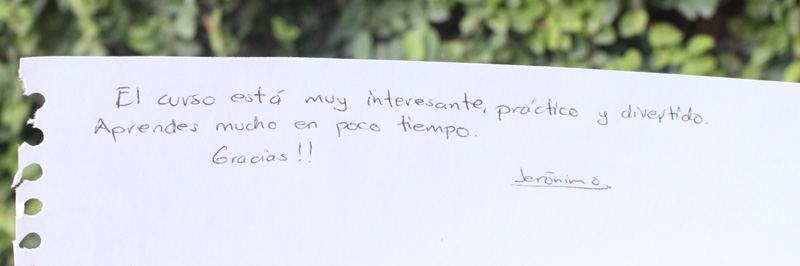 El curso está muy interesante, práctico y divertido.
Aprendes mucho en poco tiempo.
Gracias!!
Jerónimo